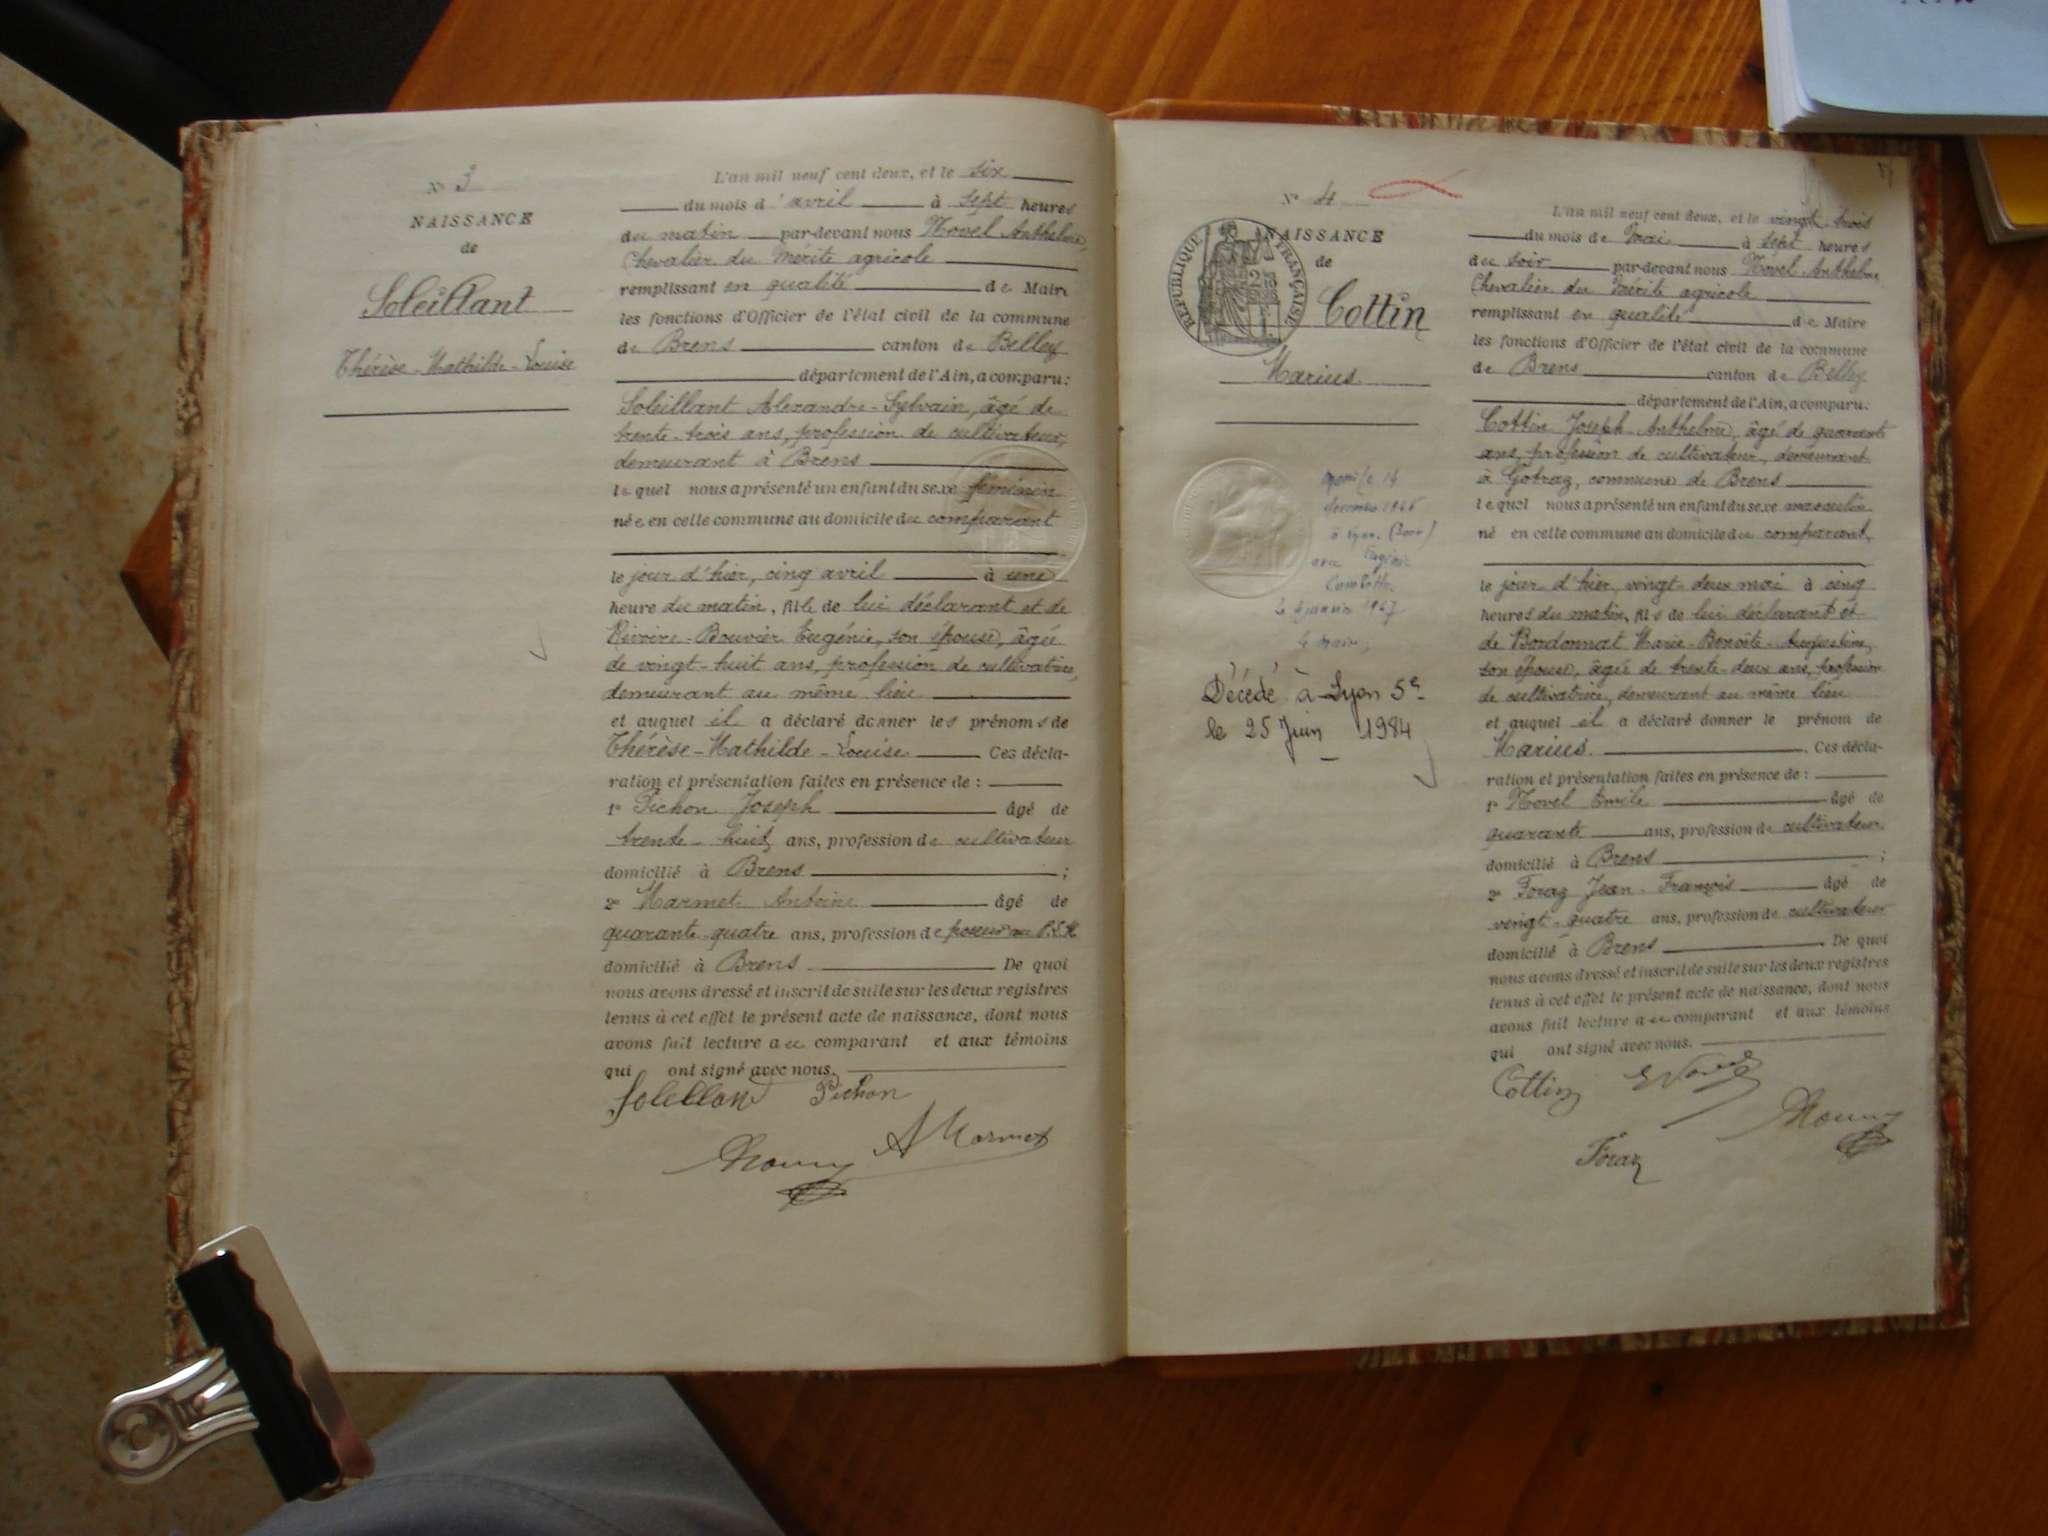 N° 3
NAISSANCE
de
Soleillant
Thérèse-Mathilde-Louise
L'an mil neuf cent deux, et le six
du mois d'avril à sept heures
du matin par-devant nous Novel Anthelme,
Chevalier du Mérite agricole
remplissant en qualité de Maire
les fonctions d'Officier de l'état civil de la commune
de Brens canton de Belley
département de l'Ain, a comparu:
Soleillant Alexandre-Sylvain, âgé de
trente-trois ans, profession de cultivateur,
demeurant à Brens
lequel nous a présenté un enfant du sexe féminin
née en cette commune au domicile du comparant
le jour d'hier, cinq avril à une
heure du matin, fille de lui déclarant et de
Rivoire-Bouvier Eugénie, son épouse, âgée
de vingt-huit ans, profession de cultivatrice,
demeurant au même lieu
et auquel il a déclaré donner les prénoms de
Thérèse-Mathilde-Louise Ces décla-
ration et présentation faites en présence de :
1° Pichon Joseph âgé de
trente-huit ans, profession de cultivateur
domicilié à Brens ;
2° Marmet Antoine âgé de
quarante-quatre ans, profession de poseur au P.L.M.
domicilié à Brens De quoi
nous avons dressé et inscrit de suite sur les deux registres
tenus à cet effet le présent acte de naissance, dont nous
avons fait lecture au comparant et aux témoins
qui ont signé avec nous.
Soleillant Pichon
A Marmet
N° 4
NAISSANCE
de
RÉPUBLIQUE FRANÇAISE
Cottin
Marius
décembre 1946
à Lyon
avec Eugénie
le 4 janvier 1947
le maire,
Décédé à Lyon 5e
le 25 Juin 1984
L'an mil neuf cent deux, et le vingt-trois
du mois de mai à sept heures
du soir par-devant nous Novel Anthelme
Chevalier du Mérite agricole
remplissant en qualité de Maire
les fonctions d'Officier de l'état civil de la commune
de Brens canton de Belley
département de l'Ain, a comparu:
Cottin Joseph-Anthelme, âgé de quarante
ans, profession de cultivateur, demeurant
à Gotraz, commune de Brens
lequel nous a présenté un enfant du sexe masculin
né en cette commune au domicile du comparant,
le jour d'hier, vingt-deux mai à cinq
heures du matin, fils de lui déclarant et
de Bordonnat Marie-Benoîte-Augustine,
son épouse, âgée de trente-deux ans, profession
de cultivatrice, demeurant au même lieu
et auquel il a déclaré donner le prénom de
Marius. Ces décla-
ration et présentation faites en présence de :
1° Novel Emile âgé de
quarante ans, profession de cultivateur
domicilié à Brens ;
2° Foraz Jean-François âgé de
vingt-quatre ans, profession de cultivateur
domicilié à Brens De quoi
nous avons dressé et inscrit de suite sur les deux registres
tenus à cet effet le présent acte de naissance, dont nous
avons fait lecture au comparant et aux témoins
qui ont signé avec nous.
Cottin E Novel
Foraz